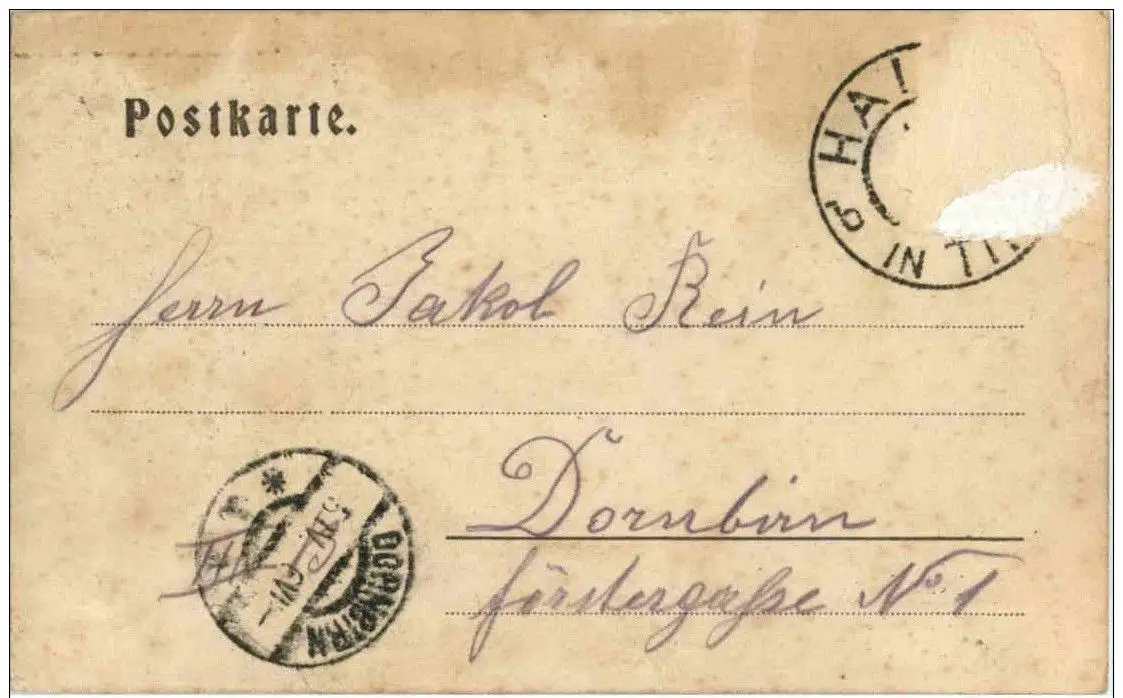 Postkarte.
HAL
IN TIR
Herrn Jakob Rein
Dornbirn
Förstergasse No 1
DORNBIRN